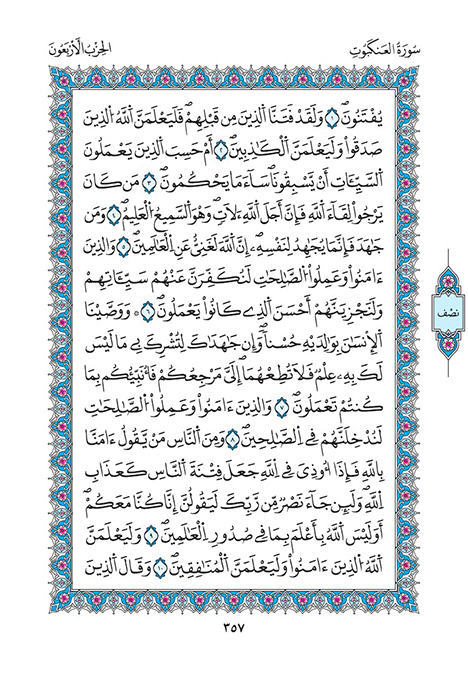 سُورَةُ الْعَنكَبُوتِ
الحِزْبُ الْأَرْبَعُونَ
يُفْتَنُونَۖ ١ وَلَقَدْ فَتَنَّا اَ۬لذِينَ مِن قَبْلِهِمْ فَلَيَعْلَمَنَّ اَ۬للَّهُ اُ۬لذِينَ
صَدَقُواْ وَلَيَعْلَمَنَّ اَ۬لْكَٰذِبِينَۖ ٢ أَمْ حَسِبَ اَ۬لذِينَ يَعْمَلُونَ
اَ۬لسَّيِّـَٔاتِ أَنْ يَّسْبِقُونَاۖ سَآءَ مَا يَحْكُمُونَۖ ٣ مَن كَانَ
يَرْجُواْ لِقَآءَ اَ۬للَّهِ فَإِنَّ أَجَلَ اَ۬للَّهِ ءَلَاتٖۖ وَهُوَ اَ۬لسَّمِيعُ اُ۬لْعَلِيمُۖ ٤ وَمَن
جَٰهَدَ فَإِنَّمَا يُجَٰهِدُ لِنَفْسِهِۦٓۖ إِنَّ اَ۬للَّهَ لَغَنِيٌّ عَنِ اِ۬لْعَٰلَمِينَۖ ٥ وَالذِينَ
ءَامَنُواْ وَعَمِلُواْ اُ۬لصَّٰلِحَٰتِ لَنُكَفِّرَنَّ عَنْهُمْ سَيِّـَٔاتِهِمْ
وَلَنَجْزِيَنَّهُمْ أَحْسَنَ اَ۬لذِے كَانُواْ يَعْمَلُونَۖ ٦ ۞ وَوَصَّيْنَا
اَ۬لِانسَٰنَ بِوَٰلِدَيْهِ حُسْناٗۖ وَإِن جَٰهَدَٰكَ لِتُشْرِكَ بِے مَا لَيْسَ
لَكَ بِهِۦ عِلْمٞ فَلَا تُطِعْهُمَآۖ إِلَيَّ مَرْجِعُكُمْ فَأُنَبِّئُكُم بِمَا
كُنتُمْ تَعْمَلُونَۖ ٧ وَالذِينَ ءَامَنُواْ وَعَمِلُواْ اُ۬لصَّٰلِحَٰتِ
لَنُدْخِلَنَّهُمْ فِے اِ۬لصَّٰلِحِينَۖ ٨ وَمِنَ اَ۬لنَّاسِ مَنْ يَّقُولُ ءَامَنَّا
بِاللَّهِ فَإِذَآ أُوذِيَ فِے اِ۬للَّهِ جَعَلَ فِتْنَةَ اَ۬لنَّاسِ كَعَذَابِ
اِ۬للَّهِۖ وَلَئِن جَآءَ نَصْرٞ مِّن رَّبِّكَ لَيَقُولُنَّ إِنَّا كُنَّا مَعَكُمْۖ
أَوَلَيْسَ اَ۬للَّهُ بِأَعْلَمَ بِمَا فِے صُدُورِ اِ۬لْعَٰلَمِينَۖ ٩ وَلَيَعْلَمَنَّ
اَ۬للَّهُ اُ۬لذِينَ ءَامَنُواْ وَلَيَعْلَمَنَّ اَ۬لْمُنَٰفِقِينَۖ ١٠ وَقَالَ اَ۬لذِينَ
نصف
٣٥٧